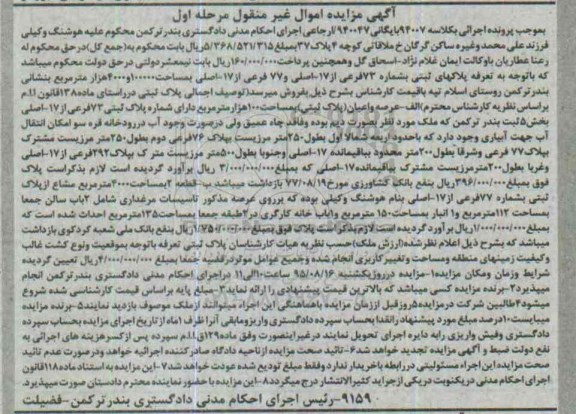 آگهی مزایده اموال غیر منقول مرحله اول
بموجب پرونده اجرائی بکلاسه ۹۴۰۰۷بایگانی۹۴۰۰۴۷ارجاعی اجرای احکام مدنی دادگستری بندرترکمن محکوم علیه هوشنگ وکیلی
فرزند علی محمد وغیره ساکن گرگان خ ملاقاتی کوچه ۴پلاک۳۷بمبلغ۵/۳۶۸/۵۲۱/۳۱۵ریال بابت محکوم به(جمع کل)در حق محکوم له
رعنا عطاریان باوکالت ایمان غلام نژاد-اسحاق گل وهمچنین پرداخت۱۶۰/۰۰۰/۰۰۰ریال بابت نیمعشردولتی در حق دولت محکوم میباشد
که باتوجه به تعرفه پلاکهای ثبتی بشماره ۷۳فرعی از۱۷-اصلی و۷۷ فرعی از۱۷-اصلی بمساحت۱۰۰۰۰۰و۴۰۰۰هزار مترمربع بنشانی
بندرترکمن روستای اسلام تپه باقیمت کارشناس بشرح ذیل بفروش میرسد(توصیف اجمالی پلاک ثبتی درراستای ماده۱۳۸قانون ا.ا.م
براساس نظریه کارشناس محترم)الف-عرصه واعیان(پلاک ثبتی)بمساحت۱۰۰هزارمترمربع دارای شماره پلاک ثبتی۷۳فرعی از۱۷-اصلی
بخش۵ثبت بندر ترکمن که ملک مورد نظر بصورت دیم بوده وفاقد چاه عمیق ولی درصورت وجود آب دررودخانه قره سو امکان انتقال
آب جهت آبیاری وجود دارد که باحدود اربعه شمالا اول بطول۲۵۰متر مرزیست بپلاک ۷۶فرعی دوم بطول۲۵۰متر مرزیست مشترک
بپلاک۷۷ فرعی وشرقا بطول۲۰۰متر محدود بباقیمانده ۱۷-اصلی وجنوبا بطول۵۰۰متر مرزیست مترک بپلاک۲۹۲فرعی از۱۷-اصلی
وغربا بطول۲۰۰مترمرزیست مشترک بباقیمانده۱۷-اصلی که بمبلغ۳/۰۰۰/۰۰۰/۰۰۰ ریال برآورد گردیده است لازم بذکراست پلاک
فوق بمبلغ۳۹۶/۰۰۰/۰۰۰ریال بنفع بانکی کشاورزی مورخ۷۷/۰۸/۱۹بازداشت میباشد ب-قطعه ۲بمساحت۴۰۰۰مترمربع مشاع ازپلاک
ثبتی بشماره ۷۷فرعی از۱۷-اصلی بنام هوشنگ وکیلی بوده که برروی عرصه مذکور تاسیسات مرغداری شامل ۲باب سالن جمعا
بمساحت ۱۱۲۰مترمربع و۱ انبار بمساحت ۱۵۰ مترمربع و۱باب خانه کارگری در۲طبقه جمعا بمساحت۱۳۵مترمربع احداث شده است که
بمبلغ۱/۰۰۰/۰۰۰/۰۰۰ریال برآورد گردیده است لازم بذکراست پلاک فوق بمبلغ۱/۷۵۰/۰۰۰/۰۰۰ریال بنفع بانک ملی شعبه کردکوی بازداشت
میباشد که بشرح ذیل اعلام نظر شده(ارزش ملک):حسب نظریه هیات کارشناسان پلاک ثبتی تعرفه باتوجه بموقعیت ونوع کشت غالب
وکیفیت زمینهای منطقه ومساحت وتغییر کاربری انجام شده وجمیع عوامل موثر درقضیه جمعا بمبلغ ۴/۰۰۰/۰۰۰/۰۰۰ریال تعیین گردیده
شرایط وزمان ومکان مزایده۱-مزایده درروزیکشنبه ۹۵/۰۸/۱۶ ساعت۱۰الی۱۱ دراجرای احکام مدنی دادگستری بندرترکمن انجام
میپذیرد۲-برنده مزایده کسی میباشد که بالاترین قیمت پیشنهادی را ارائه نماید۳-مبلغ پایه براساس قیمت کارشناسی شده شروع
میشود۴طالبین شرکت درمزایده۵روزقبل اززمان مزایده باهماهنگی این اجراء میتوانند ازملک موصوف بازدید نمایند۵-برنده مزایده
میبایست۱۰درصد مبلغ مورد پیشنهاد رانقدا بحساب سپرده دادگستری واریزومابقی آنراظرف ۱ماه ازتاریخ اجرای مزایده بحساب سپرده
دادگستری وفیش واریزی رابه دایره اجرای تحویل نمایند درغیراینصورت وفق ماده۱۲۹ق.ا.ا.م سپرده پس ازکسرهزینه های اجرائی به
نفع دولت ضبط و آگهی مزایده تجدید خواهد شد۶-تائید صحت مزایده ازناحیه دادگاه صادرکننده اجرائیه خواهد ودرصورت عدم تائید
صحت مزایده،این اجراء مسئولیتی دررابطه باخریدار ندارد وفقط مبلغ تودیع شده عودت خواهد شد۷-این مزایده به استناد ماده۱۱۸قانون
اجرای احکام مدنی دریکنوبت دریکی ازجراید کثیرالانتشار درج میگردد۸-این مزایده باحضور نماینده محترم دادستان صورت میپذیرد.
۹۱۵۹۰-رئیس اجرای احکام مدنی دادگستری بندرترکمن-فضیلت